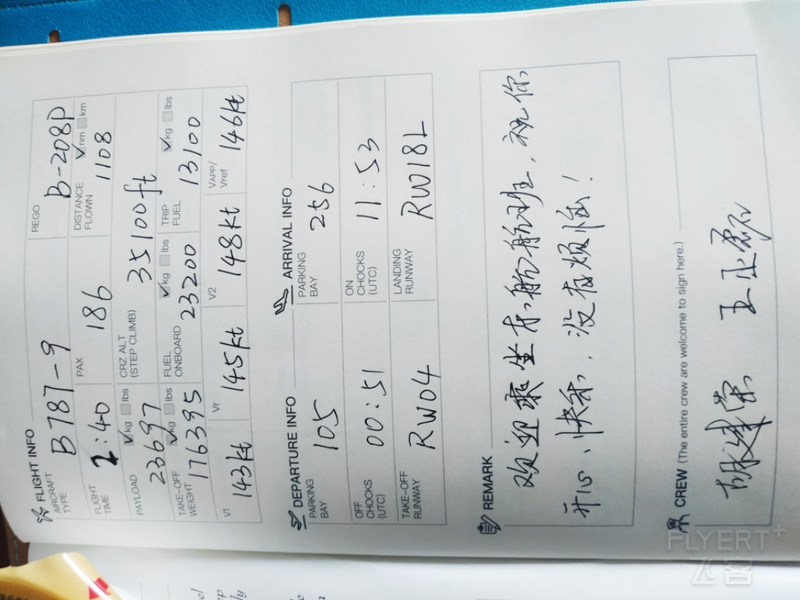 FLIGHT INFO
AIRCRAFT TYPE B787-9 REGO B-208P
FLIGHT TIME 2:40 PAX 186 DISTANCE FLOWN ✓nm km 1108
PAYLOAD ✓kg lbs 23697 CRZ ALT (STEP CLIMB) 35100ft
TAKE-OFF WEIGHT ✓kg lbs 176395 FUEL ONBOARD ✓kg lbs 23200 TRIP FUEL ✓kg lbs 13100
V1 143kt Vr 145kt V2 148kt VAPP/Vref 146kt
DEPARTURE INFO
PARKING BAY 105
OFF CHOCKS (UTC) 00:51
TAKE-OFF RUNWAY RW04
ARRIVAL INFO
PARKING BAY 256
ON CHOCKS (UTC) 11:53
LANDING RUNWAY RW18L
REMARK
欢迎乘坐东航航班,祝你
开心、快乐,没有烦恼!
CREW (The entire crew are welcome to sign here.)
胡建荣 王正
FLYERT+
飞客